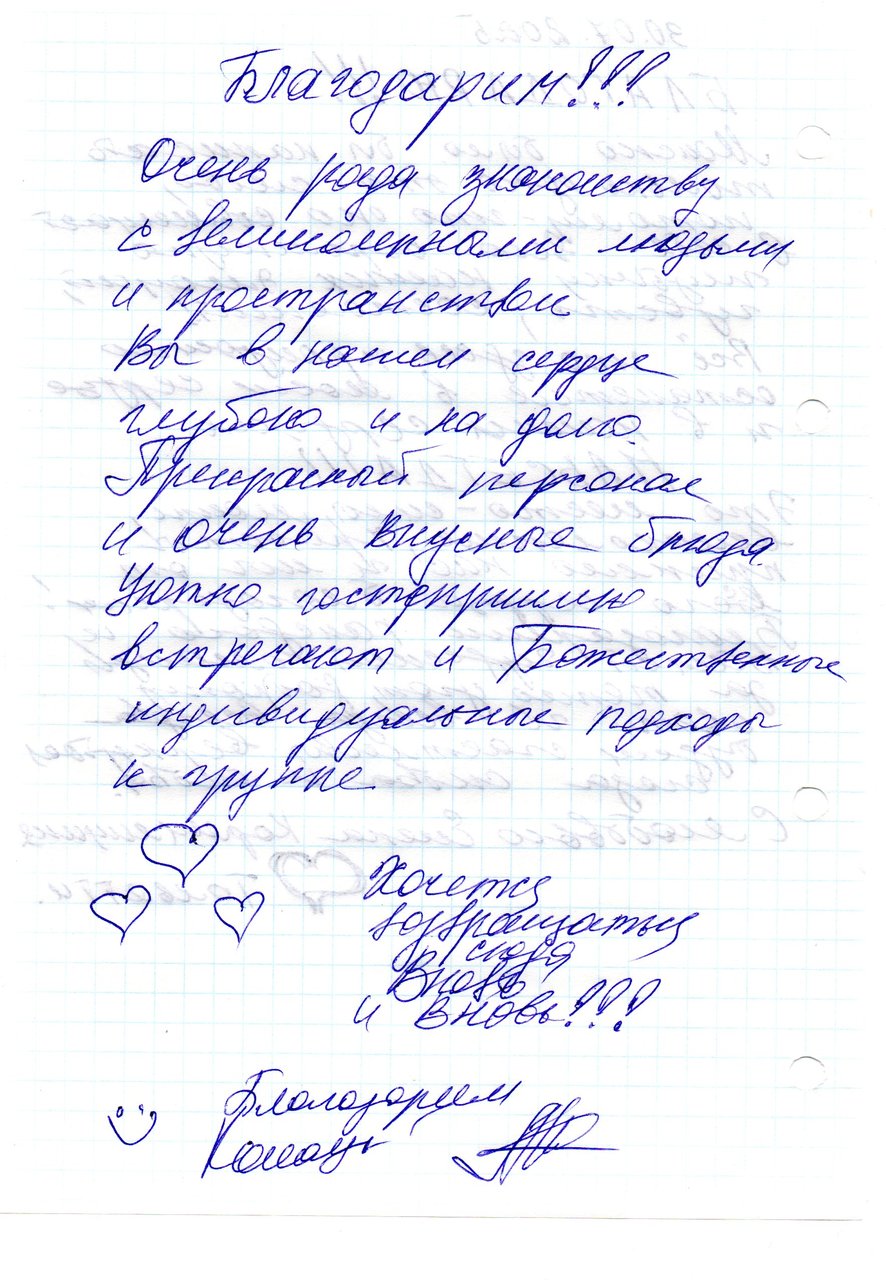 Благодарим!!!
Очень рада знакомству
с великолепными людьми
и пространством
Вы в нашем сердце
глубоко и на долго.
Прекрасный персонал
и очень вкусные блюда.
Уютно гостеприимно
встречают и Божественные
индивидуальные подходы
к группе.
Хочется
возвращаться
сюда
Вновь
и вновь!!!
Благодарим